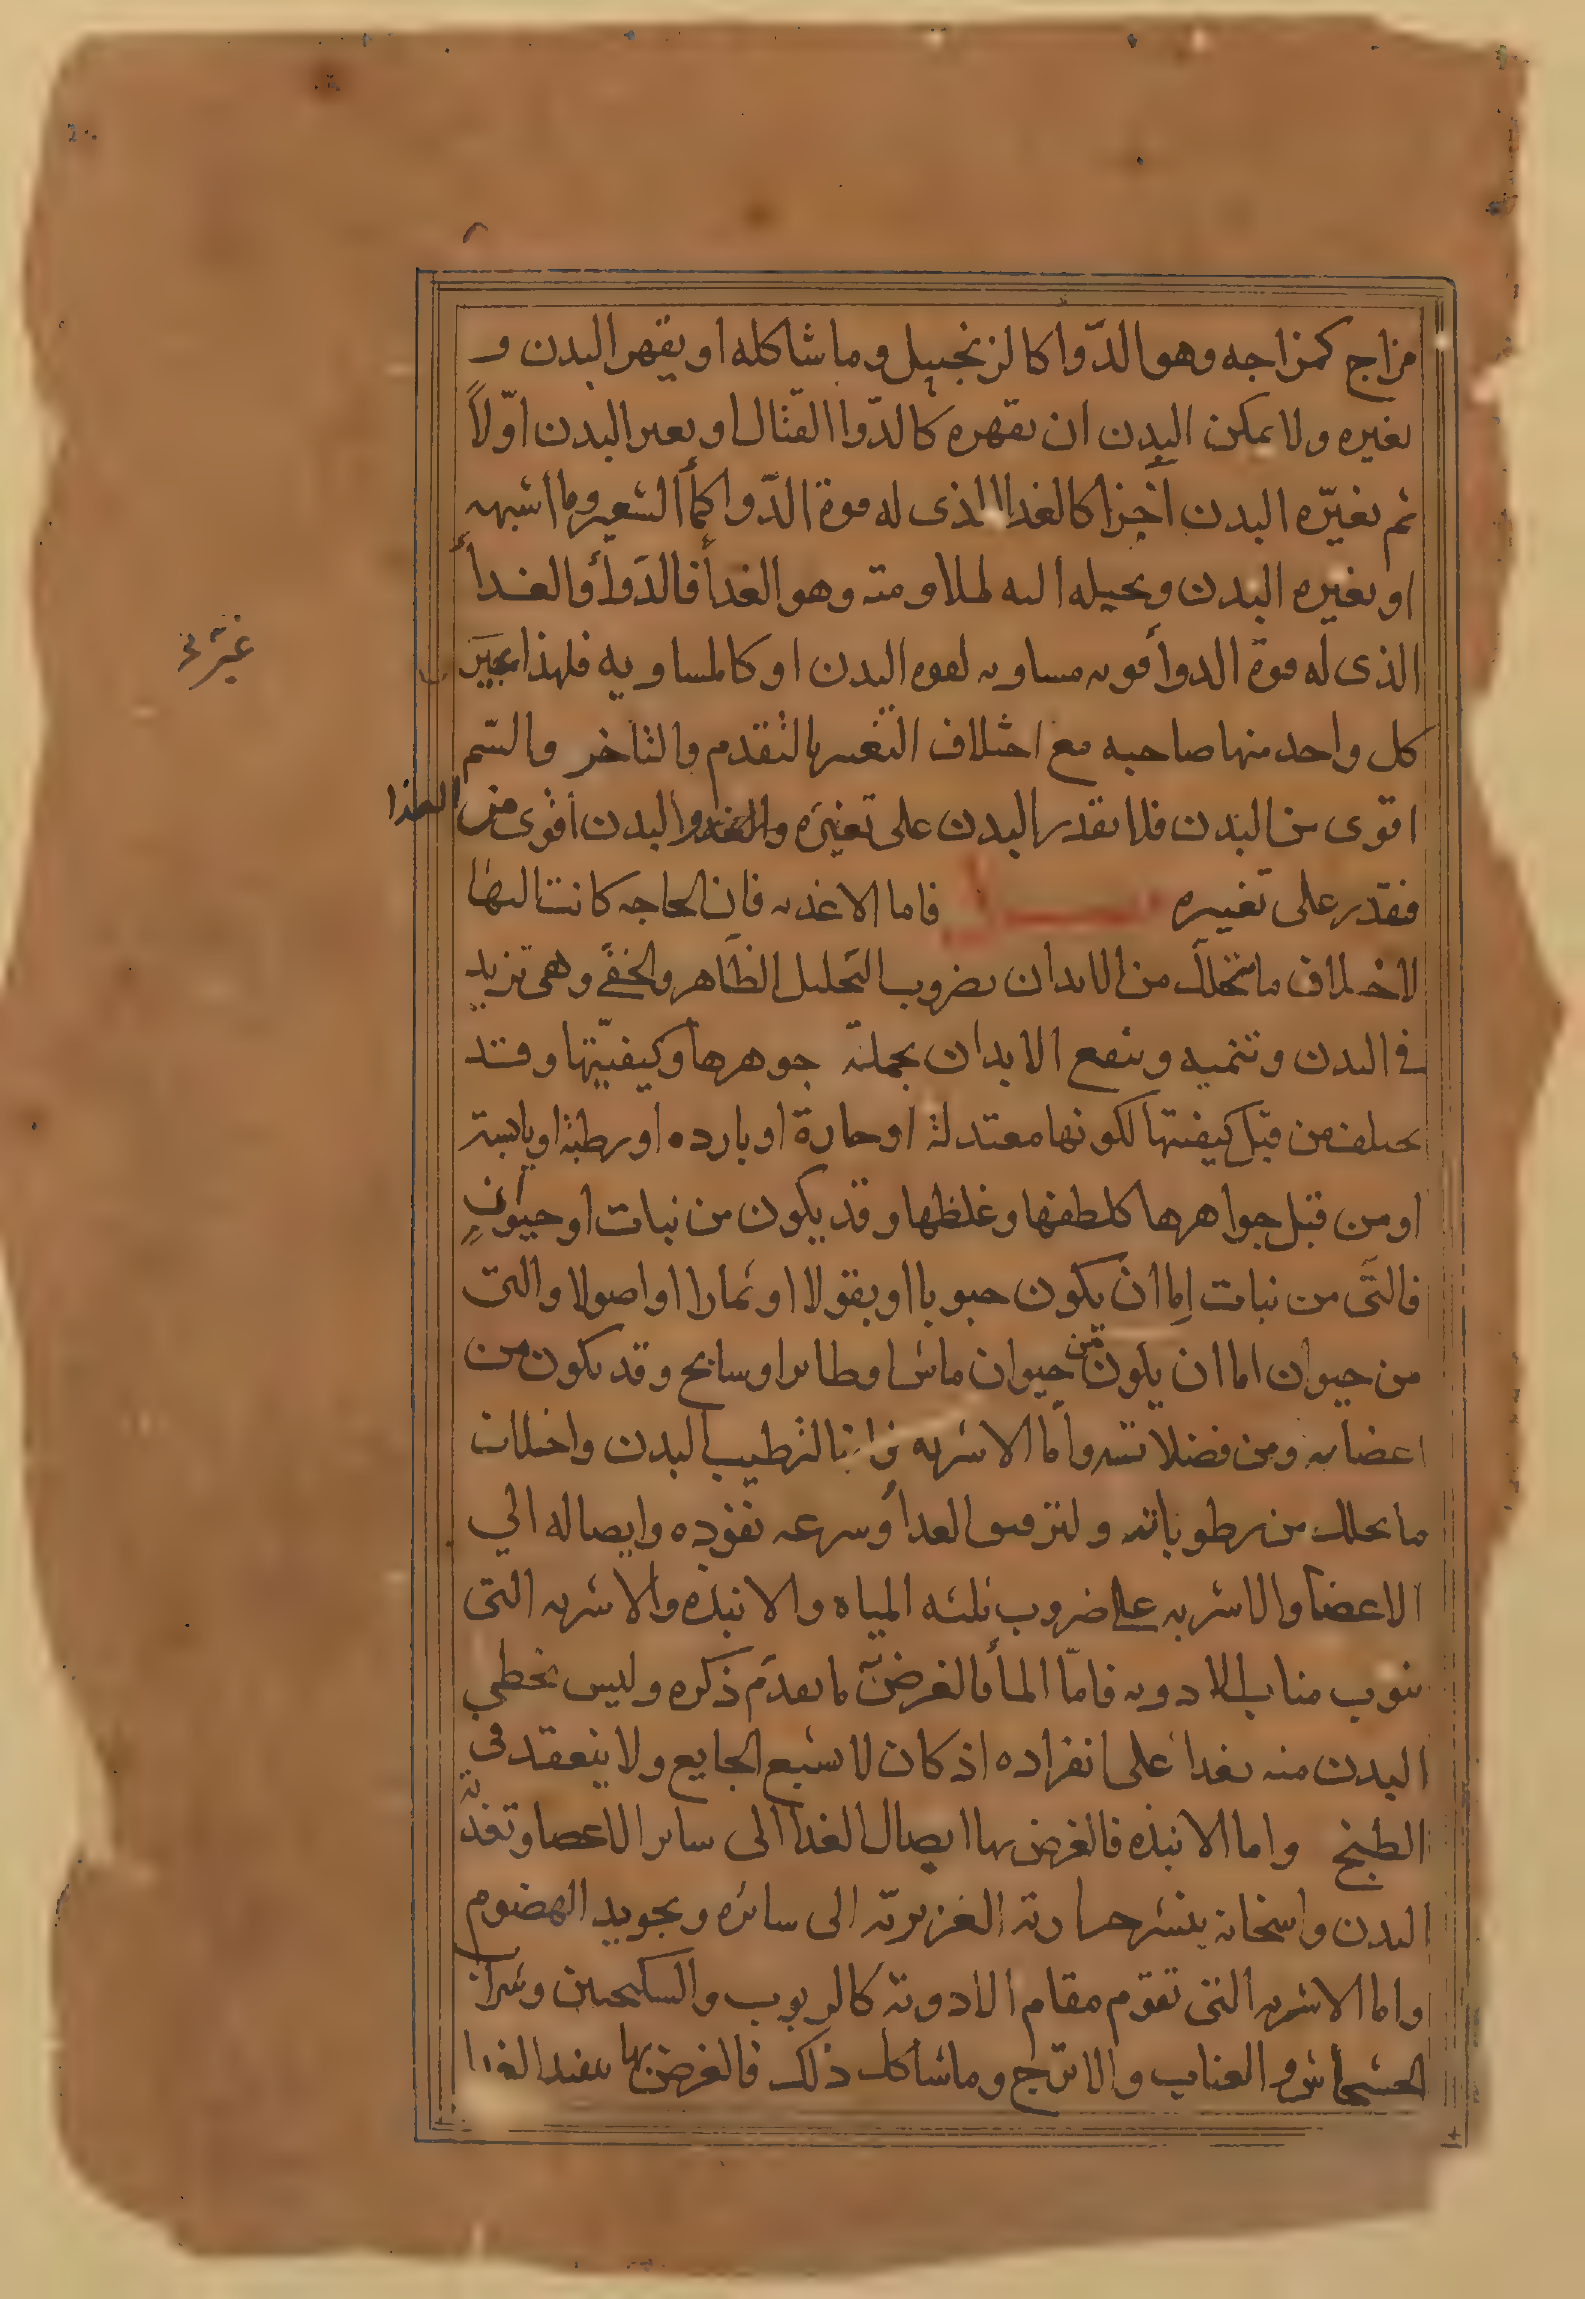 مزاج كمزاجه وهو الدّوا كالزنجبيل وما شاكله او يقهر البدن و
يغيره ولا يمكن البدن ان يقهره كالدّوا القتال او يغير البدن اوّلاً
ثم يغيّره البدن أخيرا كالغذا الذى له قوة الدّوا كمأ الشعير وما اشبهه
او يغيره البدن ويحيله اليه لملاومته وهو الغدأ فالدَوأ والغدأ
الذى له قوة الدوأ قوته مساويه لقوه البدن او كالمساويه فلهذا يغير
كل واحد منها صاحبه مع اختلاف التغير بالتقدم والتاخر والسّم
اقوى من البدن فلا يقدر البدن على تغيره والبدن اقوى من الغذا
فقدر على تغييره فصل فاما الاغذيه فان الحاجه كانت اليها
لاخلاف ما يتحلل من الابدان بضروب التحليل الظاهر والخفى وهى تزيد
فى البدن وتنميه وينفع الابدان بجملة جوهرها وكيفيّتها وقد
يختلف من قبل كيفيتها لكونها معتدلة او حارة او بارده او رطبة او يابسة
او من قبل جواهرها كلطفها وغلظها وقد يكون من نبات او حيوانٍ
فالتى من نبات إما ان يكون حبوبا او بقولا او ثمارا او اصولا والتى
من حيوان اما ان يكون من حيوان ماش او طاير او سابح وقد يكون من
اعضايه ومن فضلاته واما الاشربه فانها لترطيب البدن واخلاف
ما يحلل من رطوباته ولترقيق الغدأ وسرعه نفوذه وايصاله الي
الاعضا والاشربه على ضروب ثلثه المياه والانبذه والاشربه التى
ينوب مناب الادويه فامّا المأ فالغرض به ما تقدّم ذكره وليس يحظي
البدن منه بغدا على انفراده اذ كان لا يشبع الجايع ولا ينعقد فى
الطبخ واما الانبذه فالغرض بها ايصال الغدا الى ساير الاعضا وتغذية
البدن واسخانه بنشر حرارته الغزيرية الى سائره وبجويد الهضوم
واما الاشربه التى تقوم مقام الادوية كالربوب والسكنجبين وشراب
الخشخاش والعناب والاترج وما شاكل ذلك فالغرض بها تنفيد الغدا
غيّر